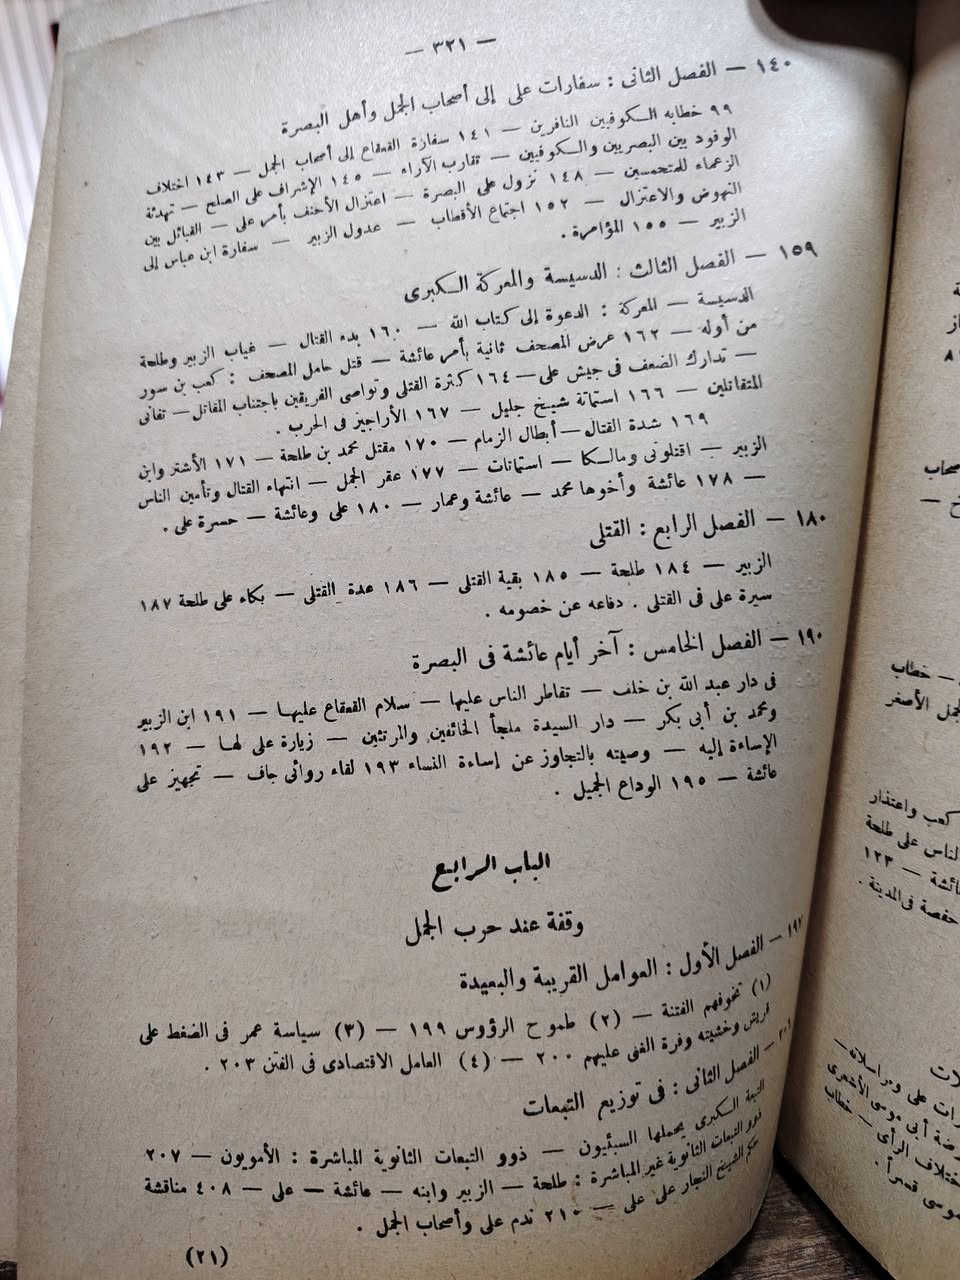 — ٣٢١ —
١٤٠ — الفصل الثانى : سفارات على إلى أصحاب الجمل وأهل البصرة
٩٩ خطابه الكوفيين النافرين — ١٤١ سفارة القعقاع إلى أصحاب الجمل — ١٤٣ اختلاف
الوفود بين البصريين والكوفيين — تقارب الآراء — ١٤٥ الإشراف على الصلح — تهدئة
الزعماء للمتحمسين — ١٤٨ نزول على البصرة — اعتزال الأحنف بأمر على — القبائل بين
النهوض والاعتزال — ١٥٢ اجتماع الأقطاب — عدول الزبير — سفارة ابن عباس إلى
الزبير — ١٥٥ المؤامرة .
١٥٩ — الفصل الثالث : الدسيسة والمعركة الكبرى
الدسيسة — المعركة : الدعوة إلى كتاب الله — ١٦٠ بدء القتال — غياب الزبير وطلحة
من أوله — ١٦٢ عرض المصحف ثانية بأمر عائشة — قتل حامل المصحف : كعب بن سور
— تدارك الضعف فى جيش على — ١٦٤ كثرة القتلى وتواصى الفريقين باجتناب المقاتل — تفانى
المتقاتلين — ١٦٦ استماتة شيخ جليل — ١٦٧ الأراجيز فى الحرب .
١٦٩ شدة القتال — أبطال الزمام — ١٧٠ مقتل محمد بن طلحة — ١٧١ الأشتر وابن
الزبير — اقتلونى ومالكا — استماتات — ١٧٧ عقر الجمل — انتهاء القتال وتأمين الناس
— ١٧٨ عائشة وأخوها محمد — عائشة وعمار — ١٨٠ على وعائشة — حسرة على .
١٨٠ — الفصل الرابع : القتلى
الزبير — ١٨٤ طلحة — ١٨٥ بقية القتلى — ١٨٦ عدة القتلى — بكاء على طلحة ١٨٧
سيرة على فى القتلى . دفاعه عن خصومه .
١٩٠ — الفصل الخامس : آخر أيام عائشة فى البصرة
فى دار عبد الله بن خلف — تقاطر الناس عليها — سلام القعقاع عليها — ١٩١ ابن الزبير
ومحمد بن أبى بكر — دار السيدة ملجأ الخائفين والمرتثين — زيارة على لها — ١٩٢
الإساءة إليه — وصيته بالتجاوز عن إساءة النساء ١٩٣ لقاء روائى جاف — تجهيز على
عائشة — ١٩٥ الوداع الجميل .
الباب الرابع
وقفة عند حرب الجمل
١٩٧ — الفصل الأول : العوامل القريبة والبعيدة
(١) تخوفهم الفتنة — (٢) طموح الرؤوس ١٩٩ — (٣) سياسة عمر فى الضغط على
قريش وخشيته وفرة الغنى عليهم ٢٠٠ — (٤) العامل الاقتصادى فى الفتن ٢٠٣ .
— الفصل الثانى : فى توزيع التبعات
التبعة الكبرى يحملها السبئيون — ذوو التبعات الثانوية المباشرة : الأمويون — ٢٠٧
ذوو التبعات الثانوية غير المباشرة : طلحة — الزبير وابنه — عائشة — على — ٤٠٨ مناقشة
حكم الشيخ النجار على على — ٢١٠ ندم على وأصحاب الجمل .
(٢١)
صحاب
— خطاب
الجمل الأصغر
كعب واعتذار
الناس على طلحة
عائشة — ١٢٣
حفصة فى المدينة .
على ومراسلاته —
أبى موسى الأشعرى
الرأى — خطاب